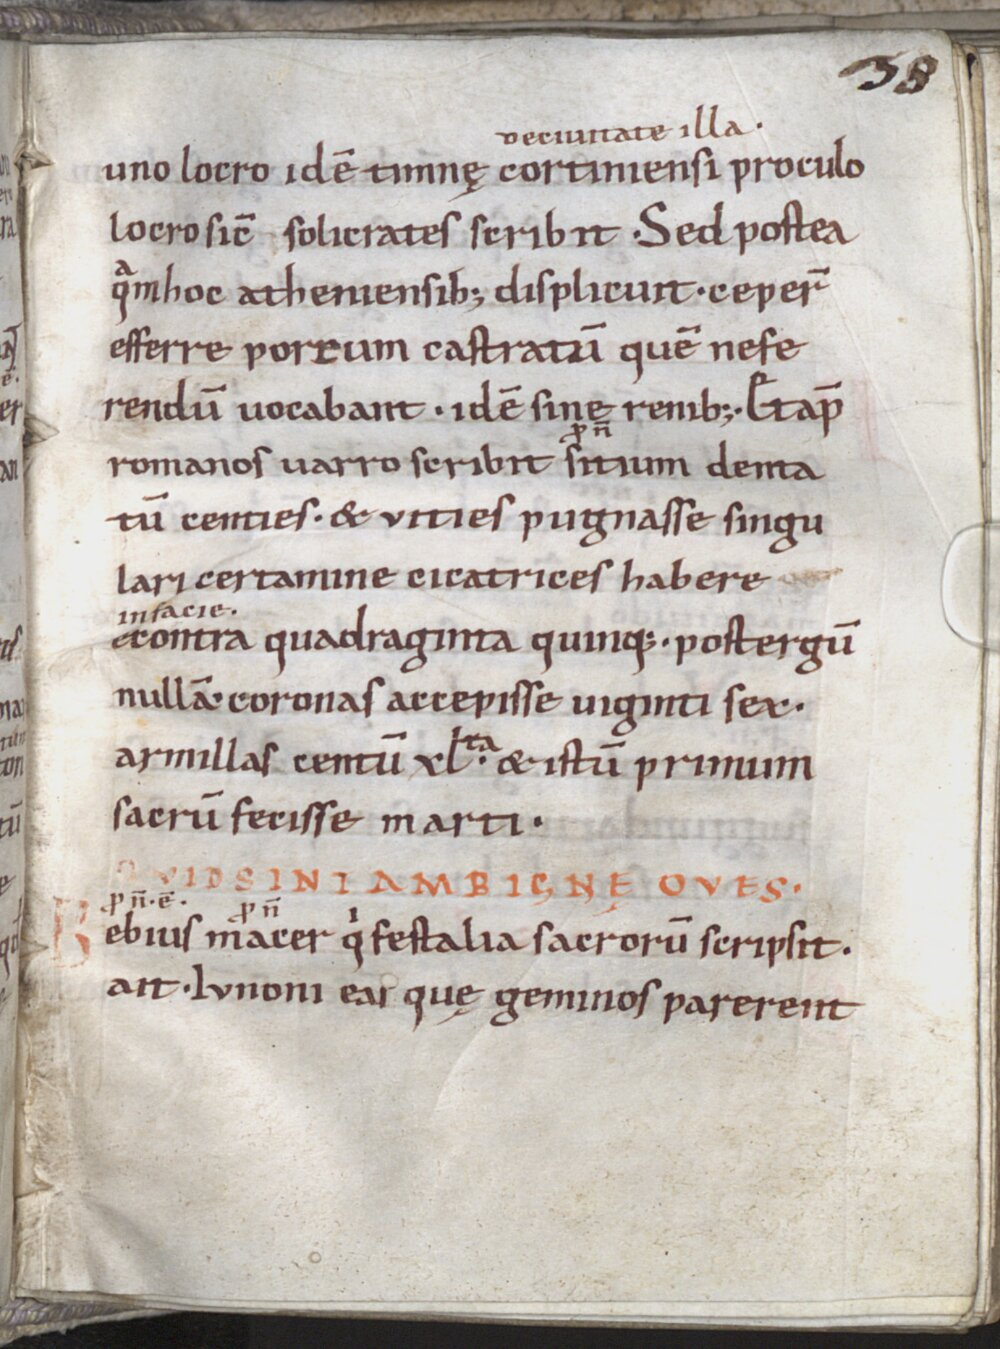 38
deciuitate illa.
uno locro idē timnę cortiniensi proculo
locro sic̄ solicrates scribit . Sed postea
qᵃm hoc atheniensib; displicuit . ceper̄
efferre porcum castratū quē nefe
rendū uocabant . idē sinę renib; . Et ap̄
ꝓn̄
romanos uarro scribit sitium denta
tū centies . & uities pugnasse singu
lari certamine cicatrices habere
infacie.
econtra quadraginta quinq; . postergū
nullā . coronas accepisse uiginti sex .
armillas centū xlᵗᵃ . & istū primum
sacrū fecisse marti .
QVID SINT AMBIGNĘ OVES .
ꝓn̄ . ē . ꝓn̄
Bebius macer qⁱ festalia sacrorū scripsit .
ait . Iunoni eas quę geminos parerent